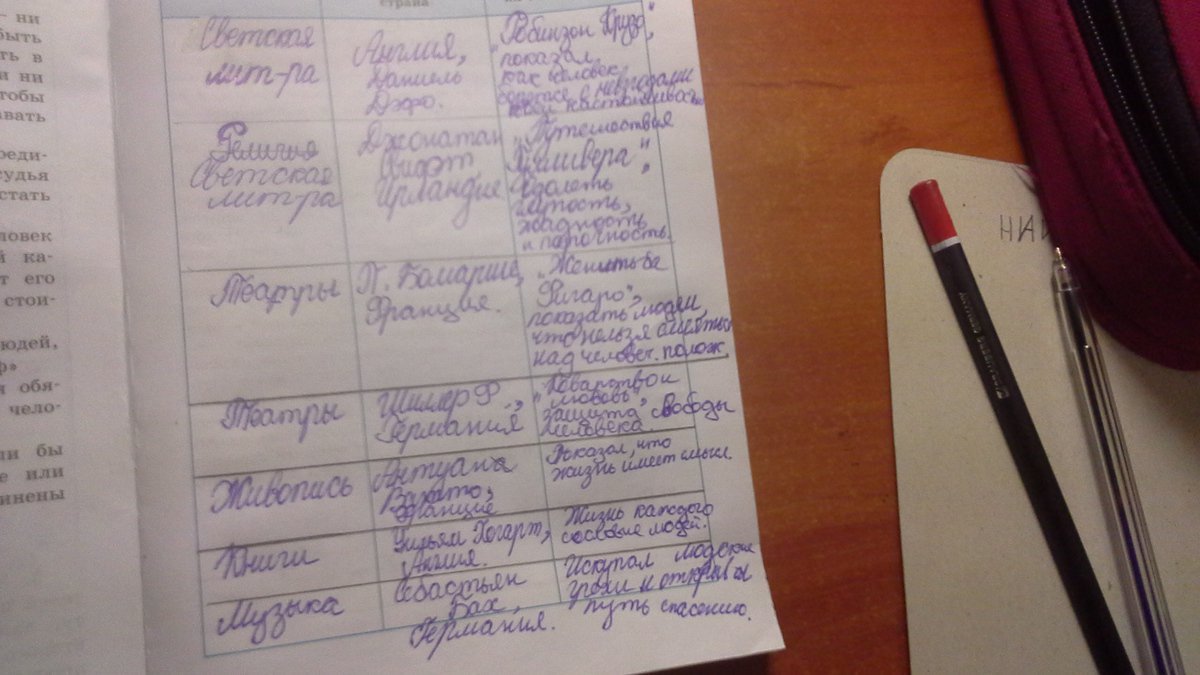 – ни
быть
ть в
и ни
чтобы
авать
реди-
судья
стать
ловек
й ка-
т его
стои-
людей,
ф»
и обя-
чело-
ли бы
е или
чинены
страна
Светская
лит-ра
Англия,
Даниель
Дефо.
"Робинзон Крузо",
показал,
как человек
борется с невзгодами
своей настойчивостью
Религия
Светская
лит-ра
Джонатан
Свифт
Ирландия
"Путешествия
Гулливера".
Одолеть
глупость,
жадность
и порочность.
Театры
П. Бомарше,
Франция.
"Женитьба
Фигаро",
показать людям,
что нельзя смеяться
над человеч. полож.
Театры
Шиллер Ф.,
Германия
"Коварство и
любовь",
защита свободы
человека.
Живопись
Антуана
Ватто,
Франция
Показал, что
жизнь имеет смысл.
Книги
Уильям Хогарт,
Англия.
Жизнь каждого
сословие людей.
Музыка
Себастьян
Бах,
Германия.
Искупал людские
грехи и открывал
путь спасению.